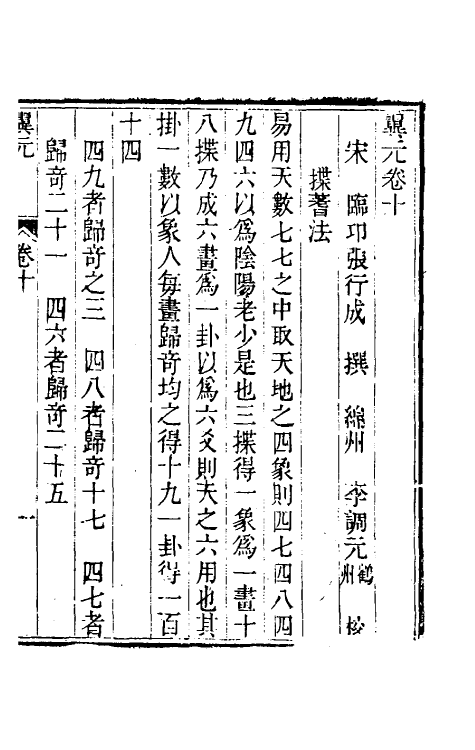 翼元卷十
宋 臨卭張行成 撰 綿州 李調元 鶴州 校
揲蓍法
易用天數七七之中取天地之四象則四七四八四
九四六以爲陰陽老少是也三揲得一象爲一畫十
八揲乃成六畫爲一卦以爲六爻則天之六用也其
掛一數以象人每畫歸奇均之得十九一卦得一百
十四
四九者歸奇之三 四八者歸奇十七 四七者
歸奇二十一 四六者歸奇二十五
翼元 卷十 一